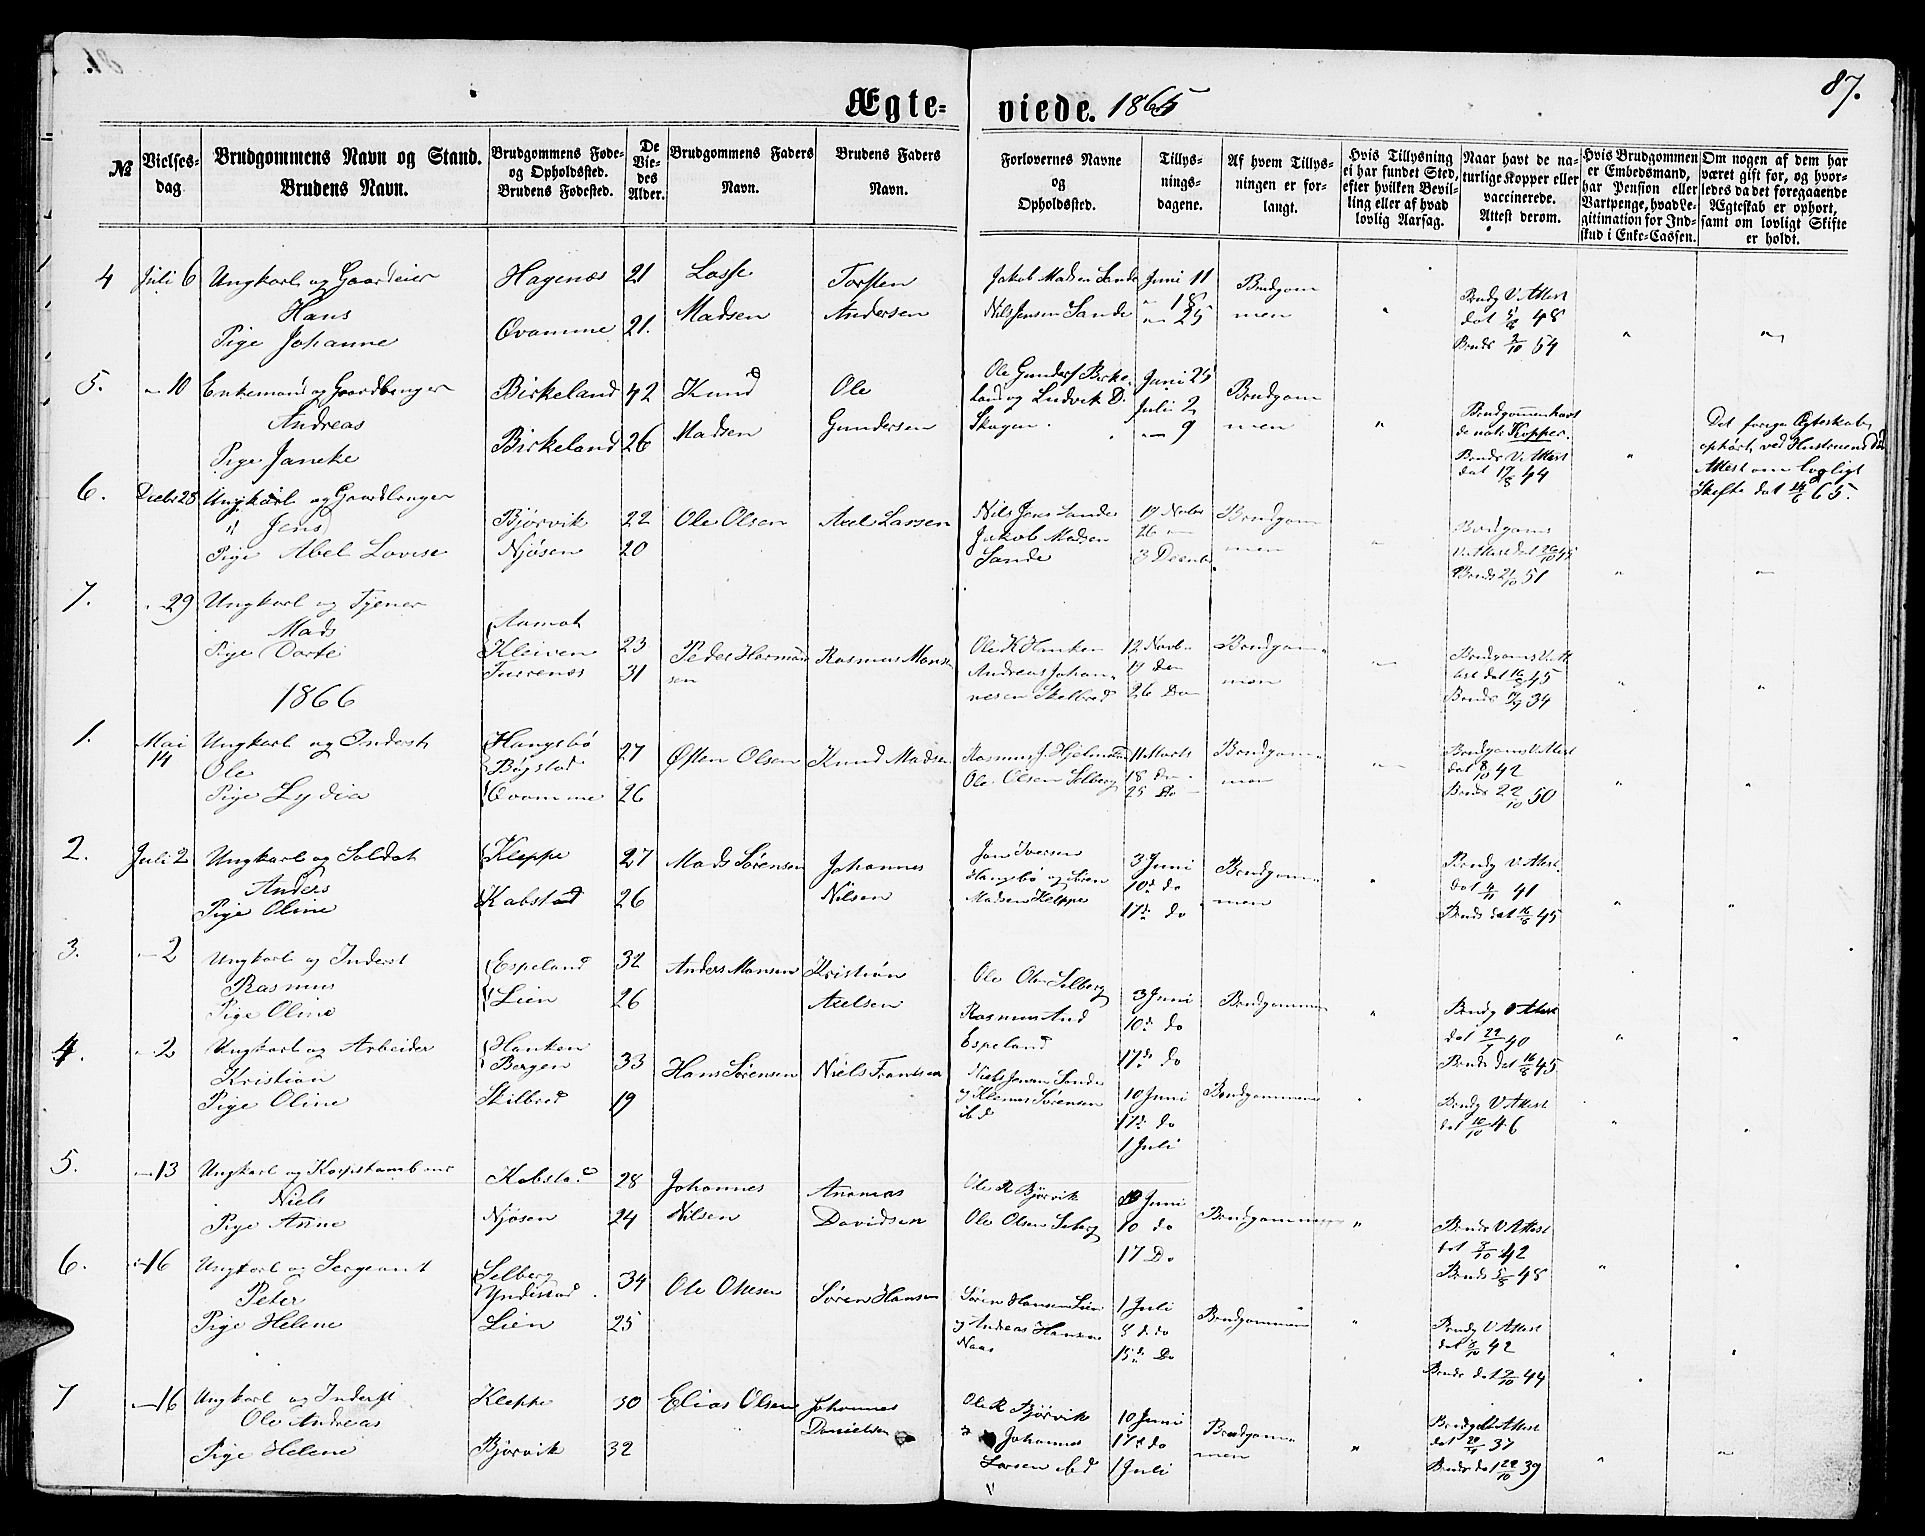 87.
Ægte- viede. 1865
№
Vielses-
dag.
Brudgommens Navn og Stand.
Brudens Navn.
Brudgommens Føde-
og Opholdssted.
Brudens Fødested.
De
Vie-
des
Alder.
Brudgommens Faders
Navn.
Brudens Faders
Navn.
Forlovernes Navne
og
Opholdssted.
Tillys-
nings-
dagene.
Af hvem Tillys-
ningen er for-
langt.
Hvis Tillysning
ei har fundet Sted,
efter hvilken Bevil-
ling eller af hvad
lovlig Aarsag.
Naar havt de na-
turlige Kopper eller
vaccinerede.
Attest derom.
Hvis Brudgommen
er Embedsmand,
har Pension eller
Vartpenge, hvad Le-
gitimation for Ind-
skud i Enke-Cassen.
Om nogen af dem har
været gift for, og hvor-
ledes da det foregaaende
Ægteskab er ophørt,
samt om lovligt Skifte
er holdt.
4 Juli 6 Ungkarl og Gaardeier Hagenæs 21 Lasse Torsten Jakob Madsen Sande Juni 11 Brudgom
Hans Madsen Andersen Nils Jensen Sande " 18 men Brudg V. Attest
Pige Johanne Øvamme 21. " 25 dat 48
Bruds 3/10 54
5. " 10 Enkemand og Gaardbruger Birkeland 42 Knud Ole Ole Gunders Birke- Juni 25 Brudgom
Andreas Madsen Gundersen land og Ludvik D. Juli 2 men Brudgommen havt
Pige Janeke Birkeland 26 Skagen. " 9 de natl Kopper.
Bruds V. Attest
dat 17/8 44
Det forige Ægteskab
ophørt ved Hustruens Død
Attest om lovligt
Skifte dat 65.
6. Decbr 28 Ungkarl og Gaardbruger
Jens Bjørvik 22 Ole Olsen Axel Larsen Nils Jens Sande 19 Novbr Brudgom
Pige Abel Lovise Njøsen 20 Jakob Madsen 26 " men Brudgoms
Sande 3 Decmbr V. Attest dat 45
Bruds 51
7. " 29 Ungkarl og Tjener Aamot
Mads Kleiven 23 Peder Herman Rasmus Mons Ole K Hanken 12 Novbr Brudgom
Pige Dorte Furenæs 31 sen Andreas Johan- 19 Do men
nesen Skilbred 26 Do Bruds 34
1866
1. Mai Ungkarl og Inderst Hangsbø 27 Østen Olsen Knud Madsen Rasmus 11 Marts Brudgom Brudgoms V. Attest
14 Ole Bøgstad Ole Olsen Selberg 18 Do men dat 8/10 42
Pige Lydia Øvamme 26 25 Do Bruds 22/10 50
2. Juli 2 Ungkarl og Soldat Kleppe 27 Mads Sørensen Johannes Jon Iversen 3 Juni Brudgom Brudg V. Attest
Anders Nilsen Hangsbø og Iver 10de do men dat 41
Pige Oline Kabstad 26 Madsen Kleppe 17de do Bruds dat 16/8 45
3. " 2 Ungkarl og Inderst Espeland 32 Anders Monsen Kristian Ole Ols Selberg 3 Juni Brudgommen Brudg V Attest
Rasmus Axelsen Rasmus And 10de do dat 40
Pige Oline Lien 26 Espeland 17de do Bruds dat 16/8 45
4. " 2 Ungkarl og Arbeider Hanken 33 Hans Sørensen Niels Frantsen Niels Jensen Sande
Kristian Bergen og Klemet Sørensen 10 Juni Brudgommen Brudg V Attest
Pige Oline Skilbred 19 ibd 17de do dat 10/10 46
1 Juli
5. " 13 Ungkarl og Kabstad 28 Johannes Ananias Ole R Bjørvik Juni Brudgommen
Niels Nilsen Davidsen Ole Olsen Selberg 10 do Bruds V Attest
Pige Anne Njøsen 24 17 Do dat 3/10 42
Bruds 48
6. " 16 Ungkarl og Sergeant Selberg 34 Ole Olsen Søren Hansen Søren Hansen Lien 1 Juli Brudgommen
Peter Yndestad og Andreas Hansen 8 d. do Brudg V. Attest
Pige Helene Lien 25 Naas 15de Do dat 42
Bruds dat 44
7 " 16 Ungkarl og Inderst Kleppe 30 Elias Olsen Johannes Ole R Bjørvik 10 Juni Brudgom
Ole Andreas Danielsen Johannes 17de do men
Pige Helene Bjørvik 32 Larsen ibd 1 Juli dat 37
Bruds dat 39